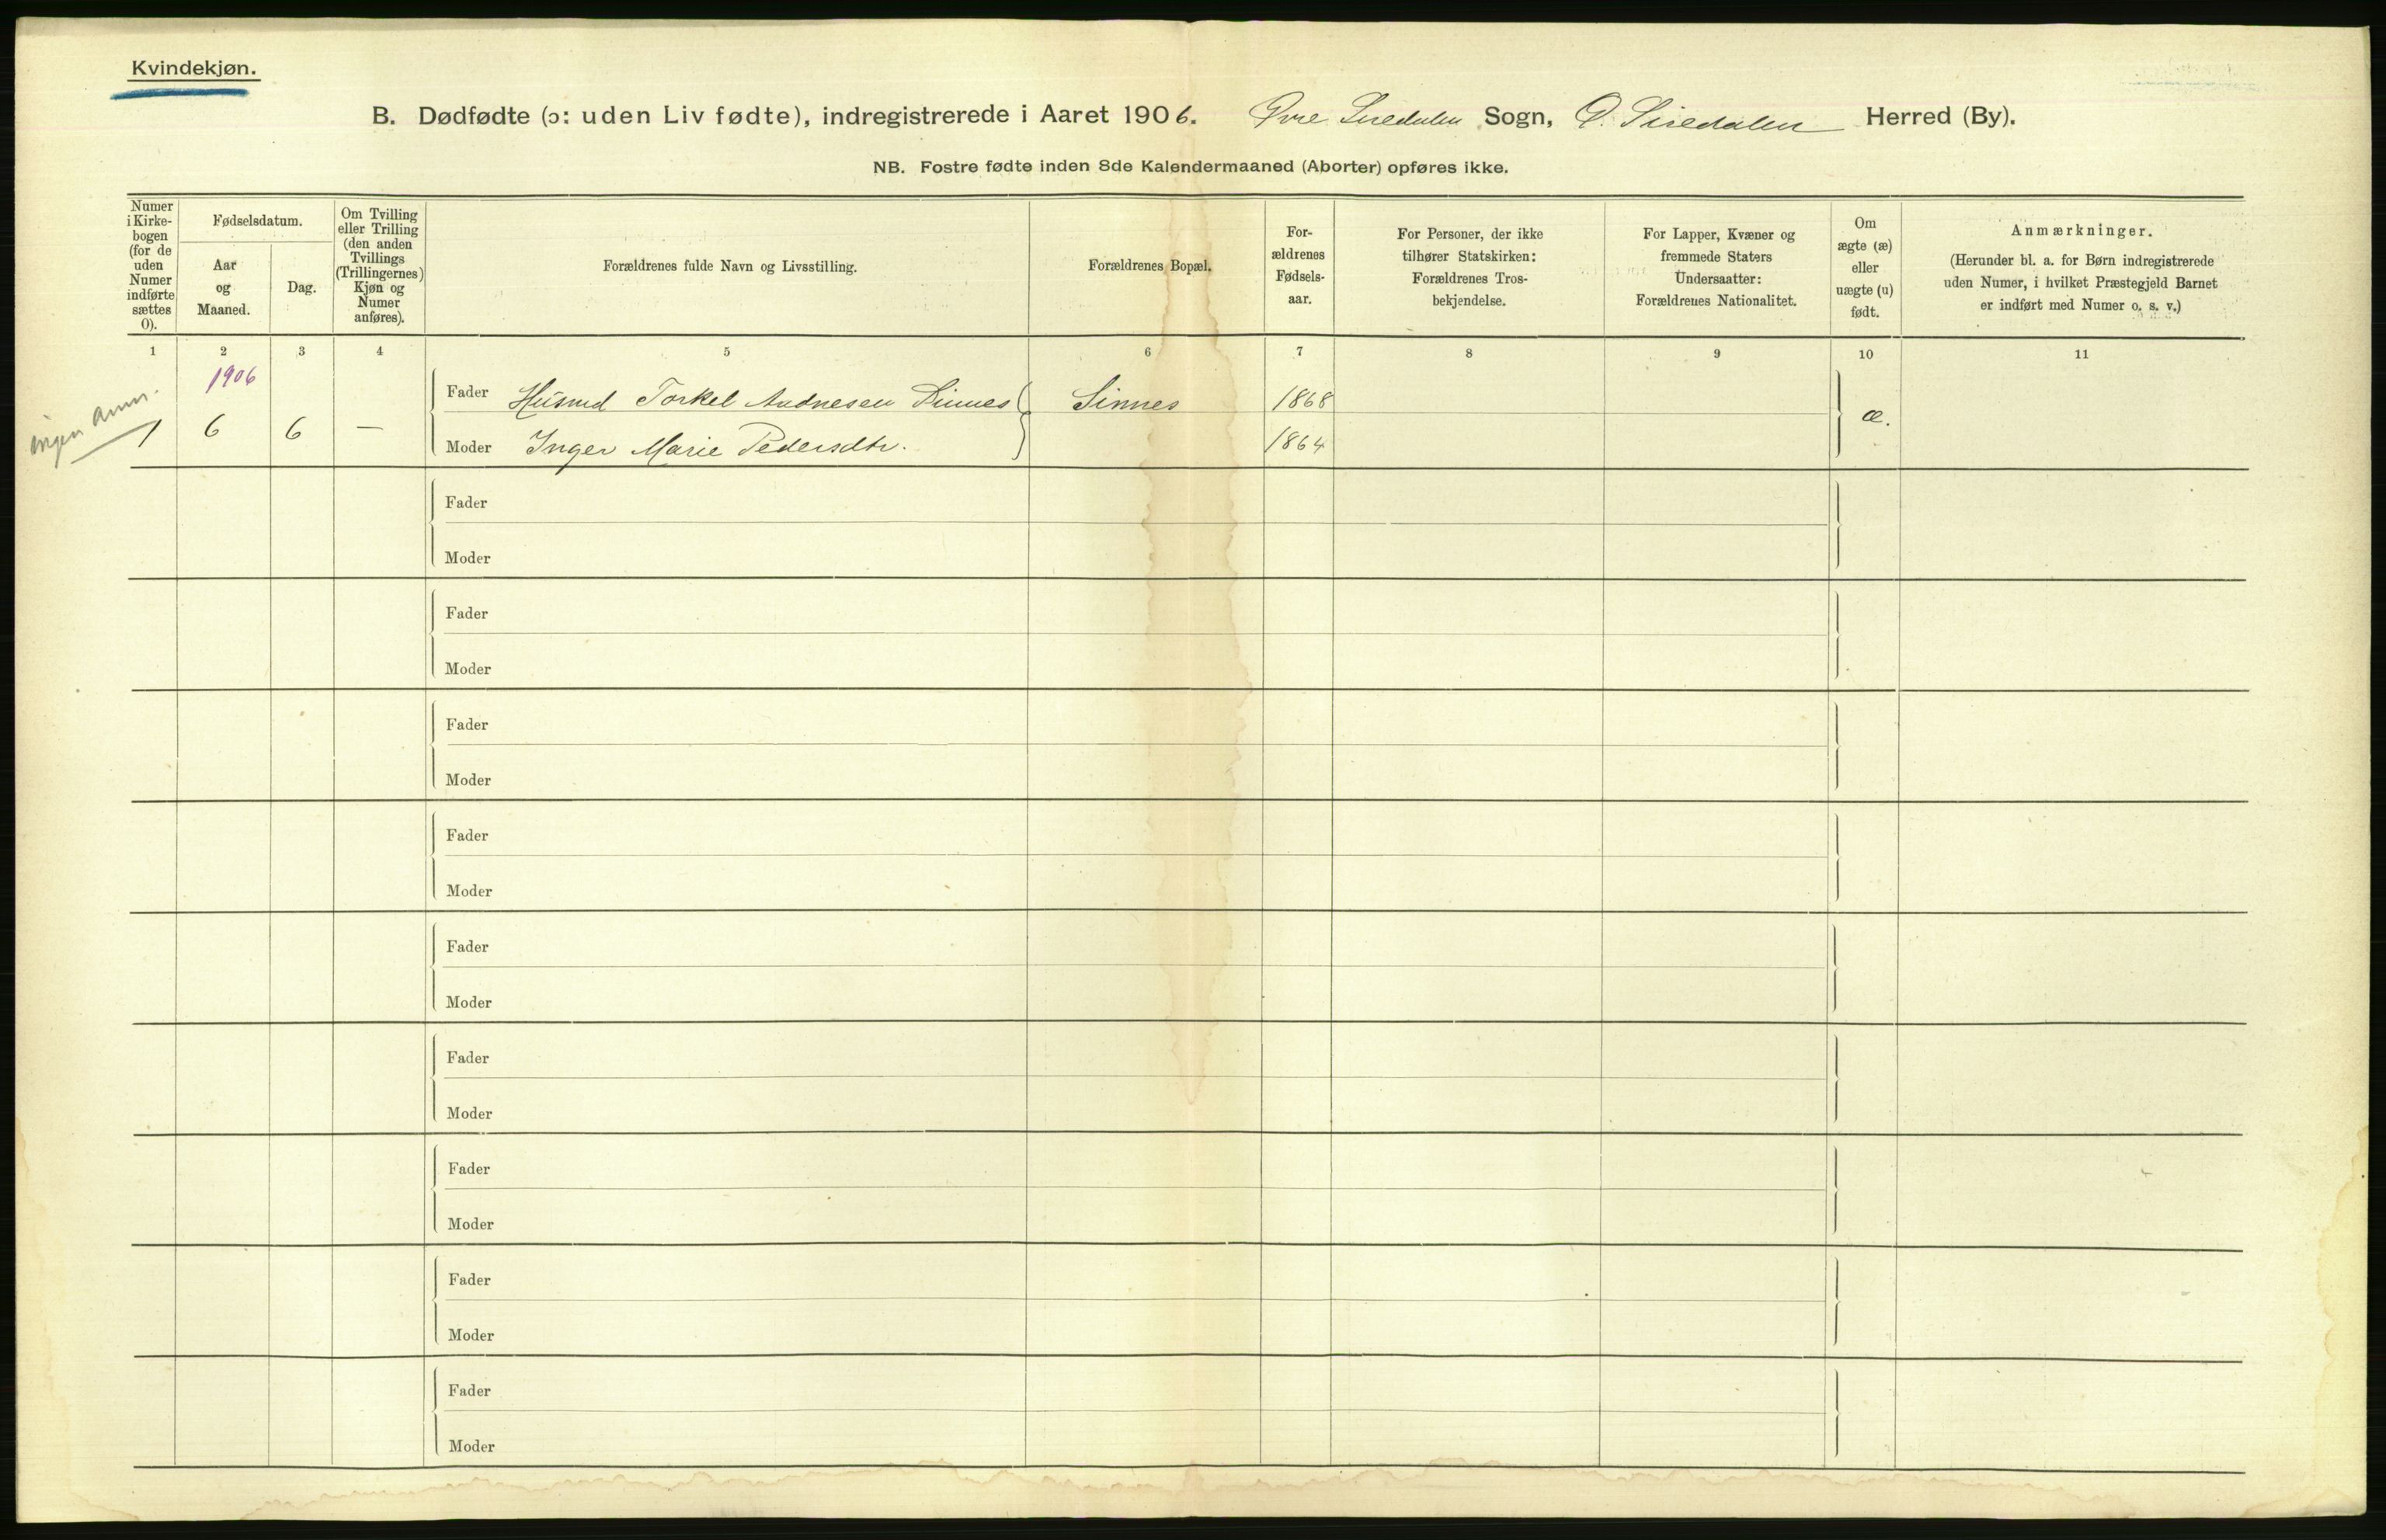 Kvindekjøn.
B. Dødfødte (ɔ: uden Liv fødte), indregistrerede i Aaret 1906. Øvre Siredalen Sogn, Ø. Siredalen Herred (By).
NB. Fostre fødte inden 8de Kalendermaaned (Aborter) opføres ikke.
Numer i Kirke-bogen (for de uden Numer indførte sættes 0).
Fødselsdatum.
Aar og Maaned.
Dag.
Om Tvilling eller Trilling (den anden Tvillings (Trillingernes) Kjøn og Numer anføres).
Forældrenes fulde Navn og Livsstilling.
Forældrenes Bopæl.
For-ældrenes Fødsels-aar.
For Personer, der ikke tilhører Statskirken: Forældrenes Tros-bekjendelse.
For Lapper, Kvæner og fremmede Staters Undersaatter: Forældrenes Nationalitet.
Om ægte (æ) eller uægte (u) født.
Anmærkninger.
(Herunder bl. a. for Børn indregistrerede uden Numer, i hvilket Præstegjeld Barnet er indført med Numer o. s. v.)
1 2 3 4 5 6 7 8 9 10 11
1906
ingen anm.
Fader Husmd Torkel Andnesen Sinnes Sinnes 1868
1 6 6 — æ.
Moder Inger Marie Pedersdtr. 1864
Fader
Moder
Fader
Moder
Fader
Moder
Fader
Moder
Fader
Moder
Fader
Moder
Fader
Moder
Fader
Moder
Fader
Moder